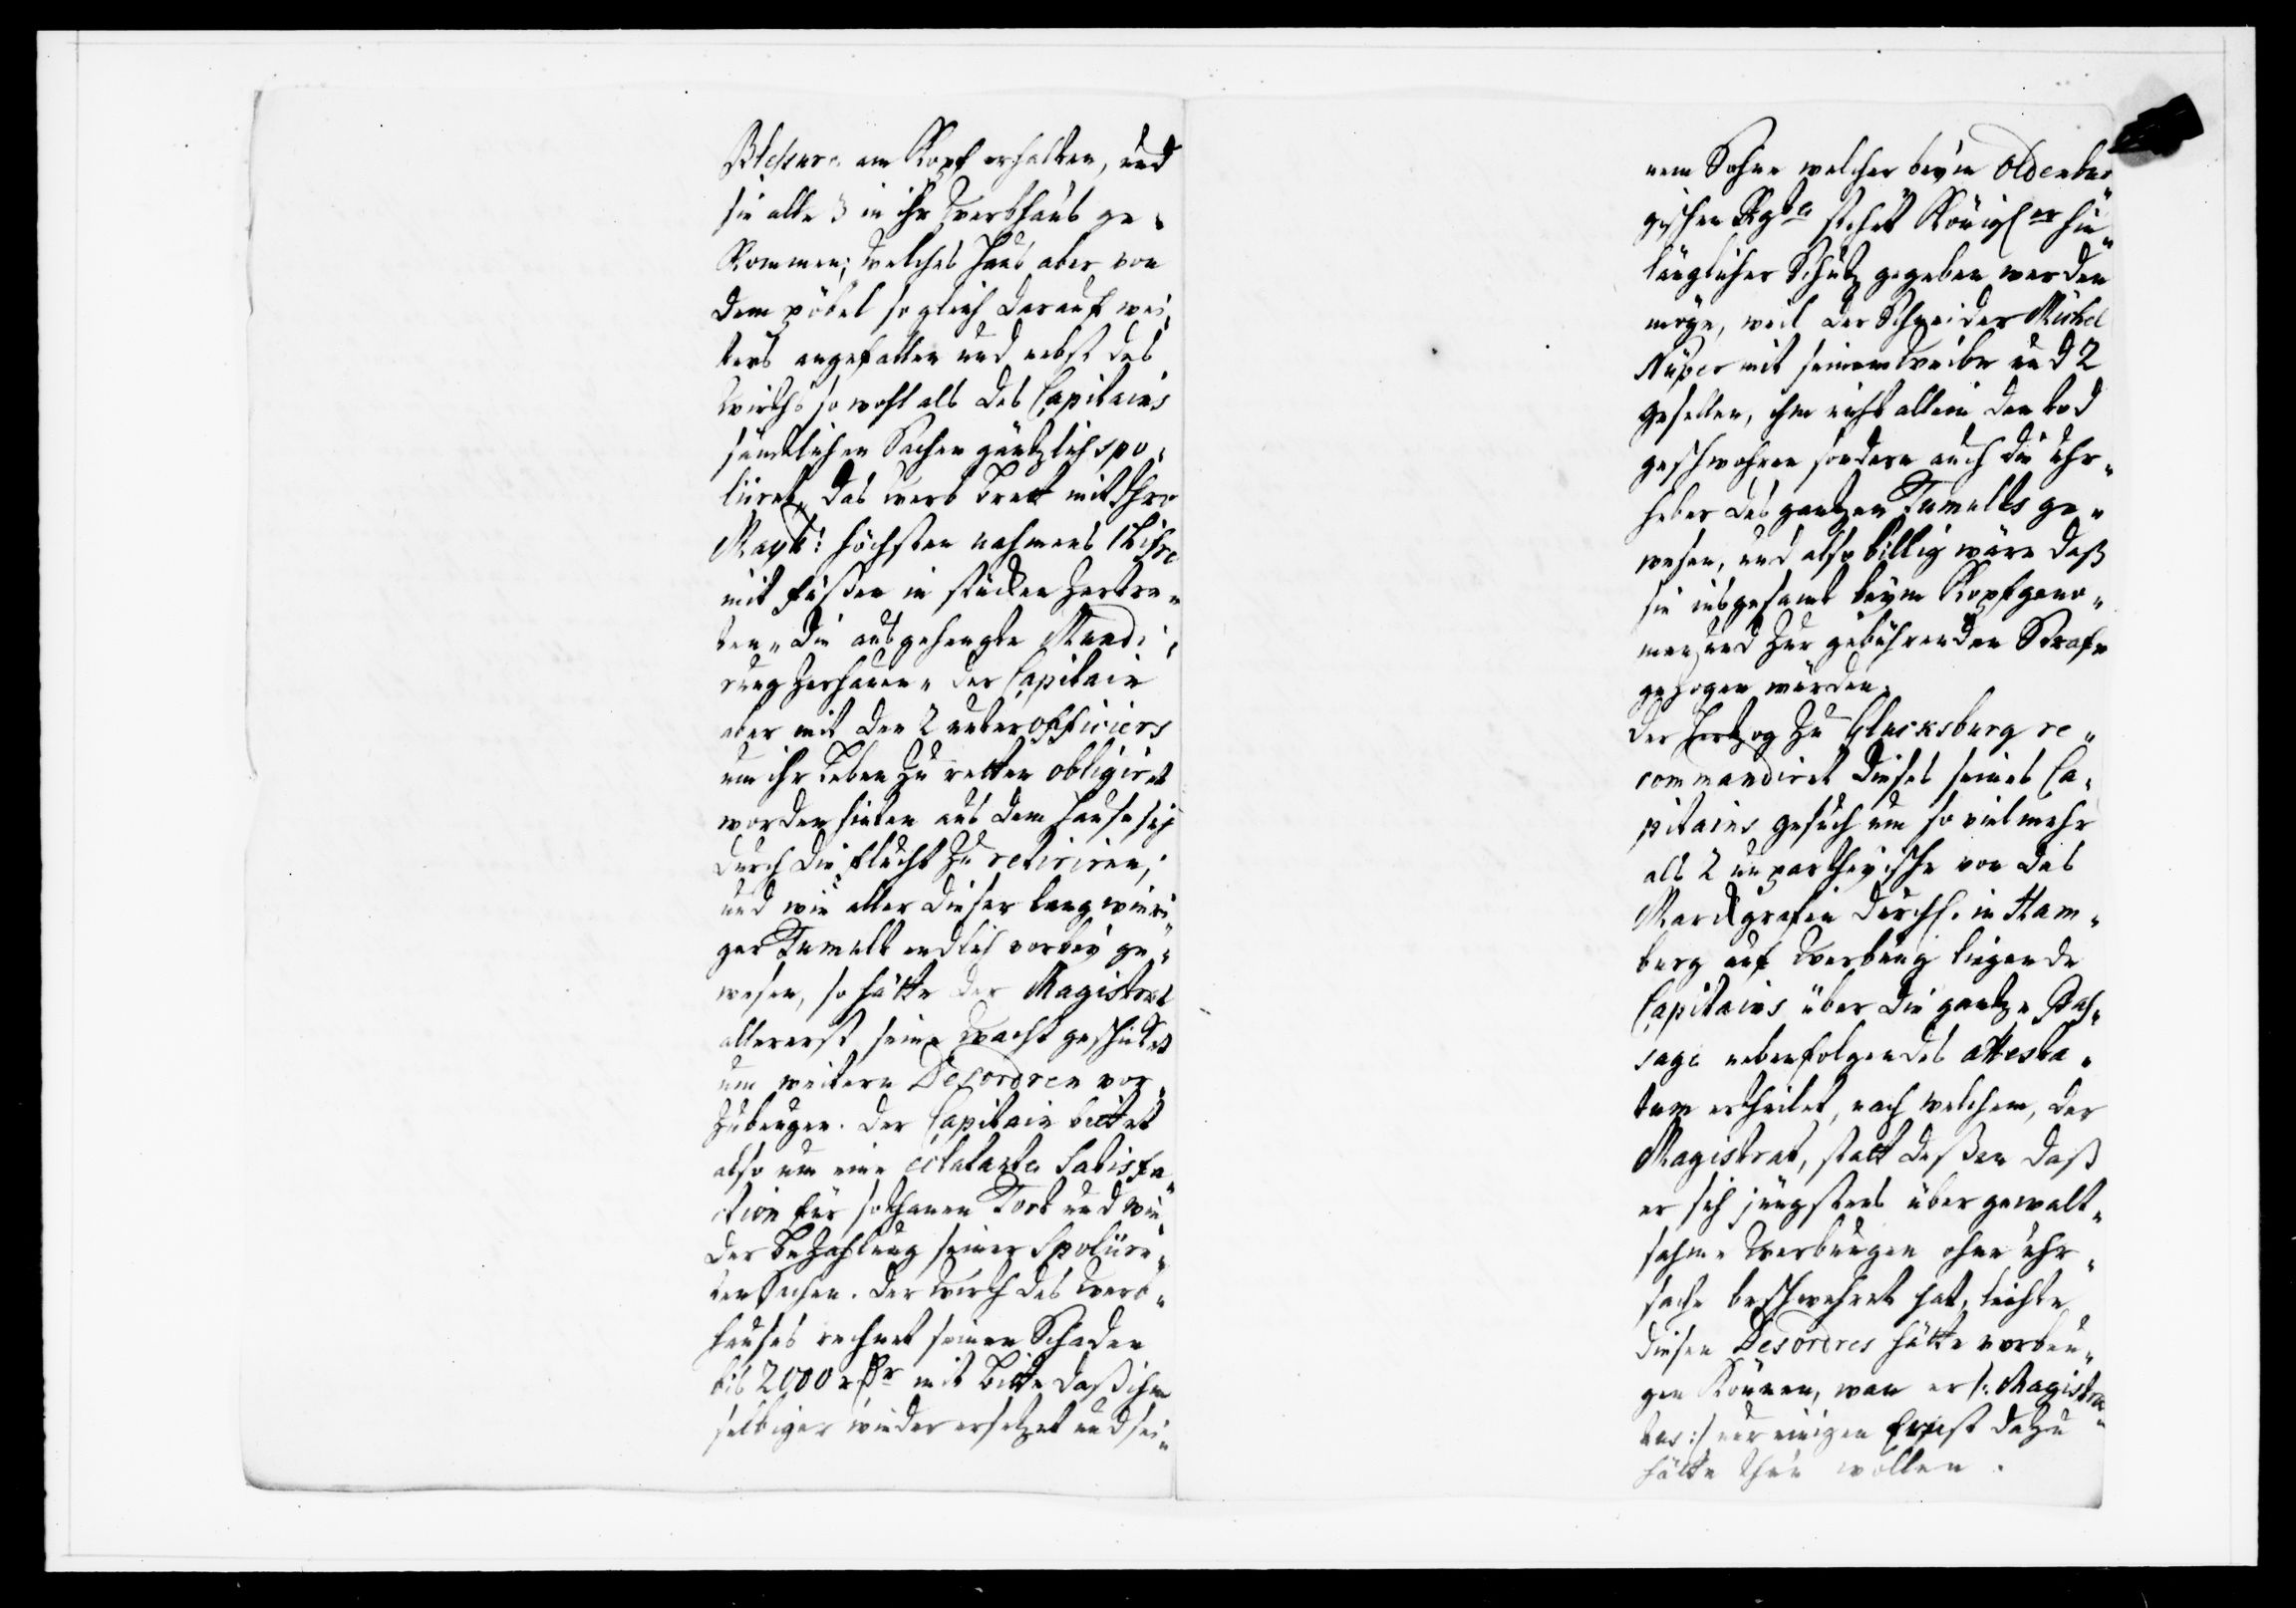 Blessure am Kopf erhalten, und
sie alle 3 in ihr Werbhaus ge-
kommen; welches Haus aber von
dem pöbel so gleich darauf wei-
ters angefallen und nebst des
Wirths so wohl als des Capitains
sämtlichen Sachen gäntzlich spo-
liiret, das Werb Brett mit Ihro
Mayt: höchsten nahmens
mit füßen in stücken zertre-
ten, die ausgehengte Mundi-
rung zerhauen, der Capitain
aber mit den 2 unterofficiers
um ihr Leben zu retten obligiret
worden hinten aus dem Hause sich
durch die flucht zu retiriren;
und wie aller dieser langwieri-
ger Tumult endlich vorbey ge-
wesen, so hätte der Magistrat
allererst seine Wacht geschicket
um weitern Desordren vor-
zubeugen. Der Capitain bittet
also um eine éclatante Satisfa-
ction für sothanen Tort und wie-
der bezahlung seiner Spoliire-
ten Sachen. Der Wirth des Werb-
hauses rechnet seinen Schaden
bis 2000 r mit bitte daß ihm
selbiger wieder ersetzet und sei-
nem Sohne welcher bey'm Oldenbur-
gischen Rgte stehet Königl er hin-
länglicher Schutz gegeben werden
möge, weil der Schneider Michel
Nüper mit seinem Weibe und 2
gesellen, ihm nicht allein den tod
geschwohren sondern auch die Uhr-
heber des gantzen Tumults ge-
wesen, und also billig wäre daß
sie insgesamt beym Kopf geno-
men und zur gebührenden Strafe
gezogen würden.
Der Hertzog zu Glucksburg re-
commandiret dieses seines Ca-
pitains gesuch um so viel mehr
als 2 unpartheyische von des
Marckgrafen Durchl. in Ham-
burg auf Werbung liegende
Capitains über die gantze Pas-
sage nebenfolgendes attesta-
tum ertheilet, nach welchem, der
Magistrat, statt deßen daß
er sich jüngstens über gewalt-
sahme Werbungen ohne Uhr-
sache beschwehret hat, leichte
diesen Desordres hätte vorbeu-
gen können, wan er /: Magistra-
tus :/ nur einigen Ernst dazu
hätte thun wollen.